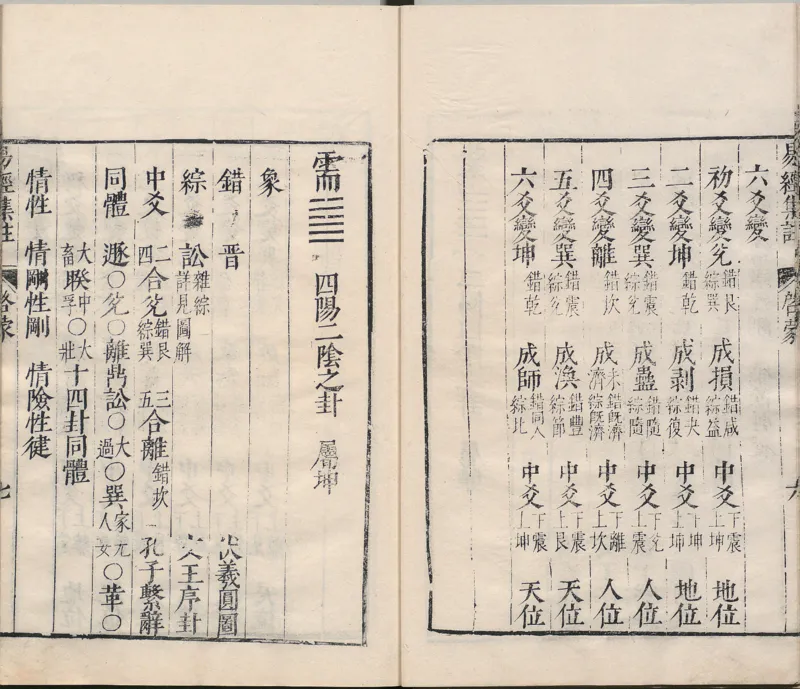 六爻變
初爻變兌 錯艮綜巽 成損 錯咸綜益 中爻 下震上坤 地位
二爻變坤 錯乾 成剝 錯夬綜復 中爻 下坤上坤 地位
三爻變巽 錯震綜兌 成蠱 錯隨綜隨 中爻 下兌上震 人位
四爻變離 錯坎 成濟 未錯既濟綜既濟 中爻 下離上坎 人位
五爻變巽 錯震綜兌 成渙 錯豐綜節 中爻 下震上艮 天位
六爻變坤 錯乾 成師 錯同人綜比 中爻 下震上坤 天位
易經集註 啓蒙 六
需 四陽二陰之卦 屬坤
象
錯 晋 伏羲圓圖
綜 訟 雜綜詳見圖解 文王序卦
中爻 二四合兌 錯艮綜巽 三五合離 錯坎 孔子繫辭
同體 遯○兌○離鼎訟○大過○巽家人无妄○革○
大畜睽中孚○大壯十四卦同體
情性 情剛性剛 情險性健
易經集註 啓蒙 七